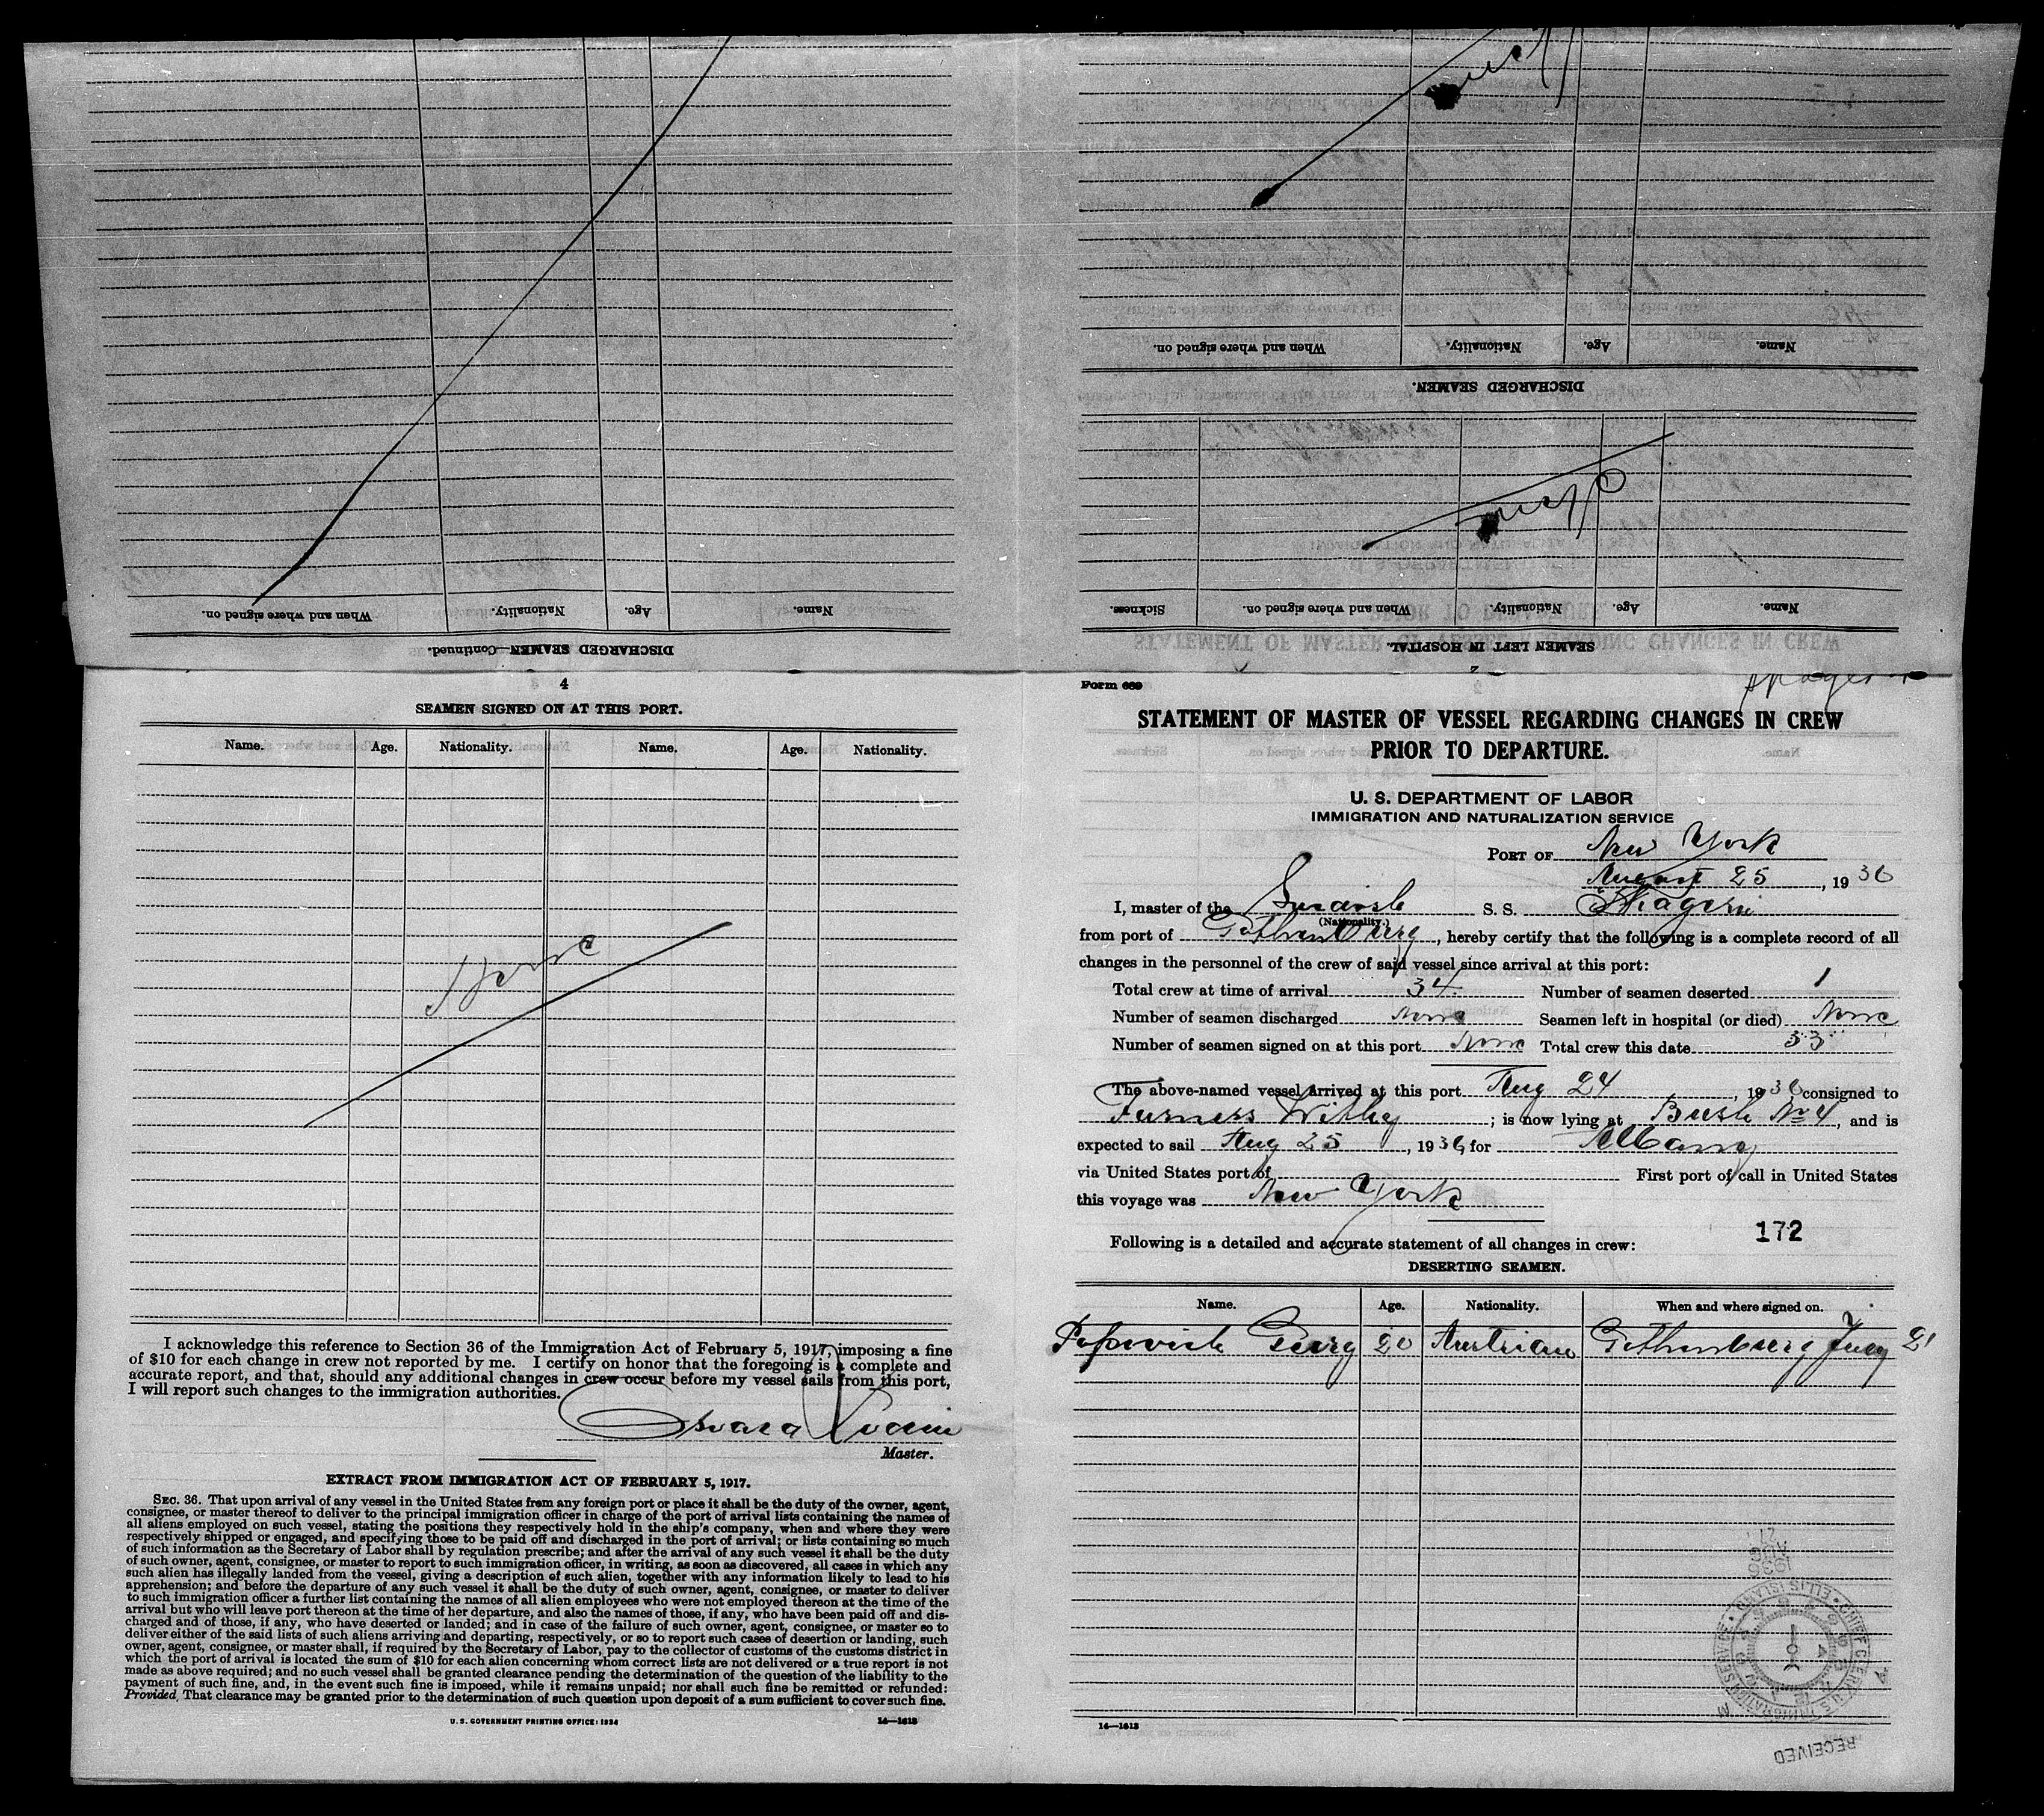 DISCHARGED SEAMEN.
Name. Age. Nationality. When and where signed on.
None
SEAMEN LEFT IN HOSPITAL.
Name. Age. Nationality. When and where signed on. Sickness.
None
2
DISCHARGED SEAMEN—Continued.
Name. Age. Nationality. When and where signed on.
4
SEAMEN SIGNED ON AT THIS PORT.
Name. Age. Nationality. Name. Age. Nationality.
None
I acknowledge this reference to Section 36 of the Immigration Act of February 5, 1917, imposing a fine
of $10 for each change in crew not reported by me. I certify on honor that the foregoing is a complete and
accurate report, and that, should any additional changes in crew occur before my vessel sails from this port,
I will report such changes to the immigration authorities.
Master.
EXTRACT FROM IMMIGRATION ACT OF FEBRUARY 5, 1917.
SEC. 36. That upon arrival of any vessel in the United States from any foreign port or place it shall be the duty of the owner, agent,
consignee, or master thereof to deliver to the principal immigration officer in charge of the port of arrival lists containing the names of
all aliens employed on such vessel, stating the positions they respectively hold in the ship's company, when and where they were
respectively shipped or engaged, and specifying those to be paid off and discharged in the port of arrival; or lists containing so much
of such information as the Secretary of Labor shall by regulation prescribe; and after the arrival of any such vessel it shall be the duty
of such owner, agent, consignee, or master to report to such immigration officer, in writing, as soon as discovered, all cases in which any
such alien has illegally landed from the vessel, giving a description of such alien, together with any information likely to lead to his
apprehension; and before the departure of any such vessel it shall be the duty of such owner, agent, consignee, or master to deliver
to such immigration officer a further list containing the names of all alien employees who were not employed thereon at the time of the
arrival but who will leave port thereon at the time of her departure, and also the names of those, if any, who have been paid off and dis-
charged and of those, if any, who have deserted or landed; and in case of the failure of such owner, agent, consignee, or master so to
deliver either of the said lists of such aliens arriving and departing, respectively, or so to report such cases of desertion or landing, such
owner, agent, consignee, or master shall, if required by the Secretary of Labor, pay to the collector of customs of the customs district in
which the port of arrival is located the sum of $10 for each alien concerning whom correct lists are not delivered or a true report is not
made as above required; and no such vessel shall be granted clearance pending the determination of the question of the liability to the
payment of such fine, and, in the event such fine is imposed, while it remains unpaid; nor shall such fine be remitted or refunded:
Provided, That clearance may be granted prior to the determination of such question upon deposit of a sum sufficient to cover such fine.
U. S. GOVERNMENT PRINTING OFFICE: 1934 14—1613
Form 689
STATEMENT OF MASTER OF VESSEL REGARDING CHANGES IN CREW
PRIOR TO DEPARTURE.
U. S. DEPARTMENT OF LABOR
IMMIGRATION AND NATURALIZATION SERVICE
PORT OF New York
August 25, 1936
I, master of the Swedish S. S. Skagern
(Nationality.)
from port of Gothenberg, hereby certify that the following is a complete record of all
changes in the personnel of the crew of said vessel since arrival at this port:
Total crew at time of arrival 34 Number of seamen deserted 1
Number of seamen discharged None Seamen left in hospital (or died) None
Number of seamen signed on at this port None Total crew this date 33
The above-named vessel arrived at this port Aug 24, 1936 consigned to
Furness Withy; is now lying at Bush No 4, and is
expected to sail Aug 25, 1936, for Albany
via United States port of First port of call in United States
this voyage was New York
172
Following is a detailed and accurate statement of all changes in crew:
DESERTING SEAMEN.
Name. Age. Nationality. When and where signed on.
Popovich Georg 20 Austrian Gothenberg July 21
AUG 27 1936
CHIEF CLERK U.S. IMMIGRATION SERVICE ELLIS ISLAND
RECEIVED
14—1613